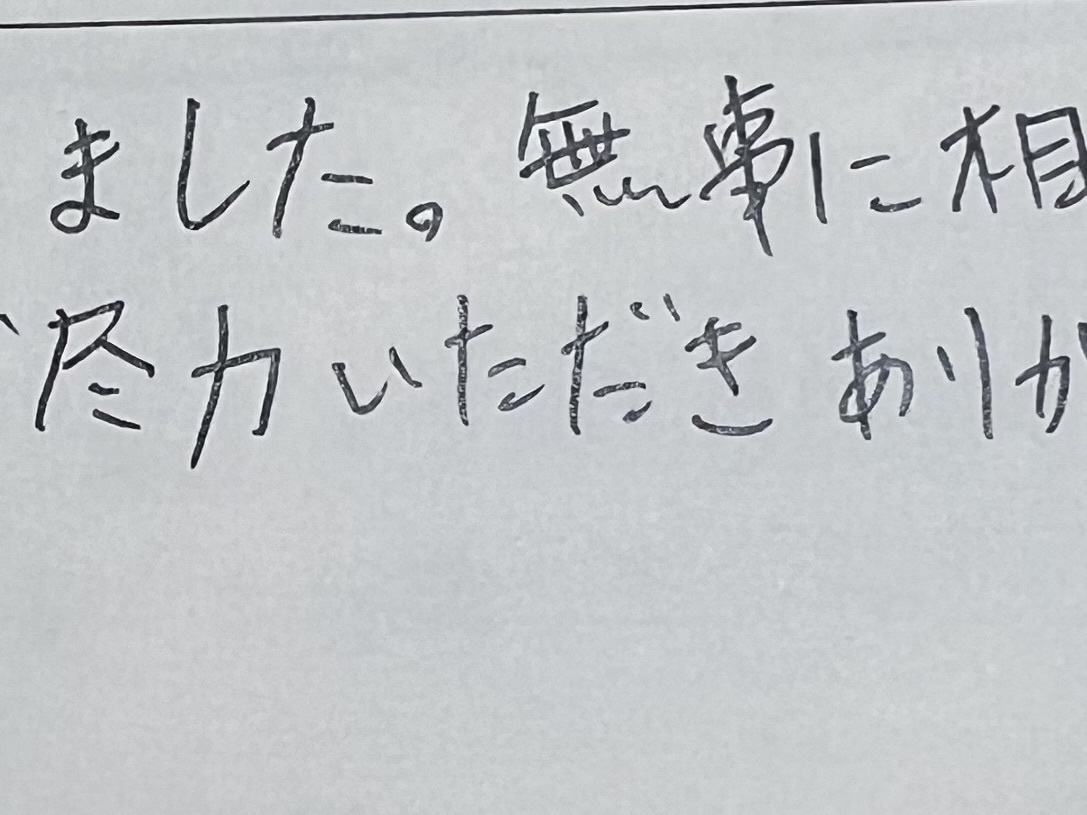 ました。無事に相
尽力いただきありか